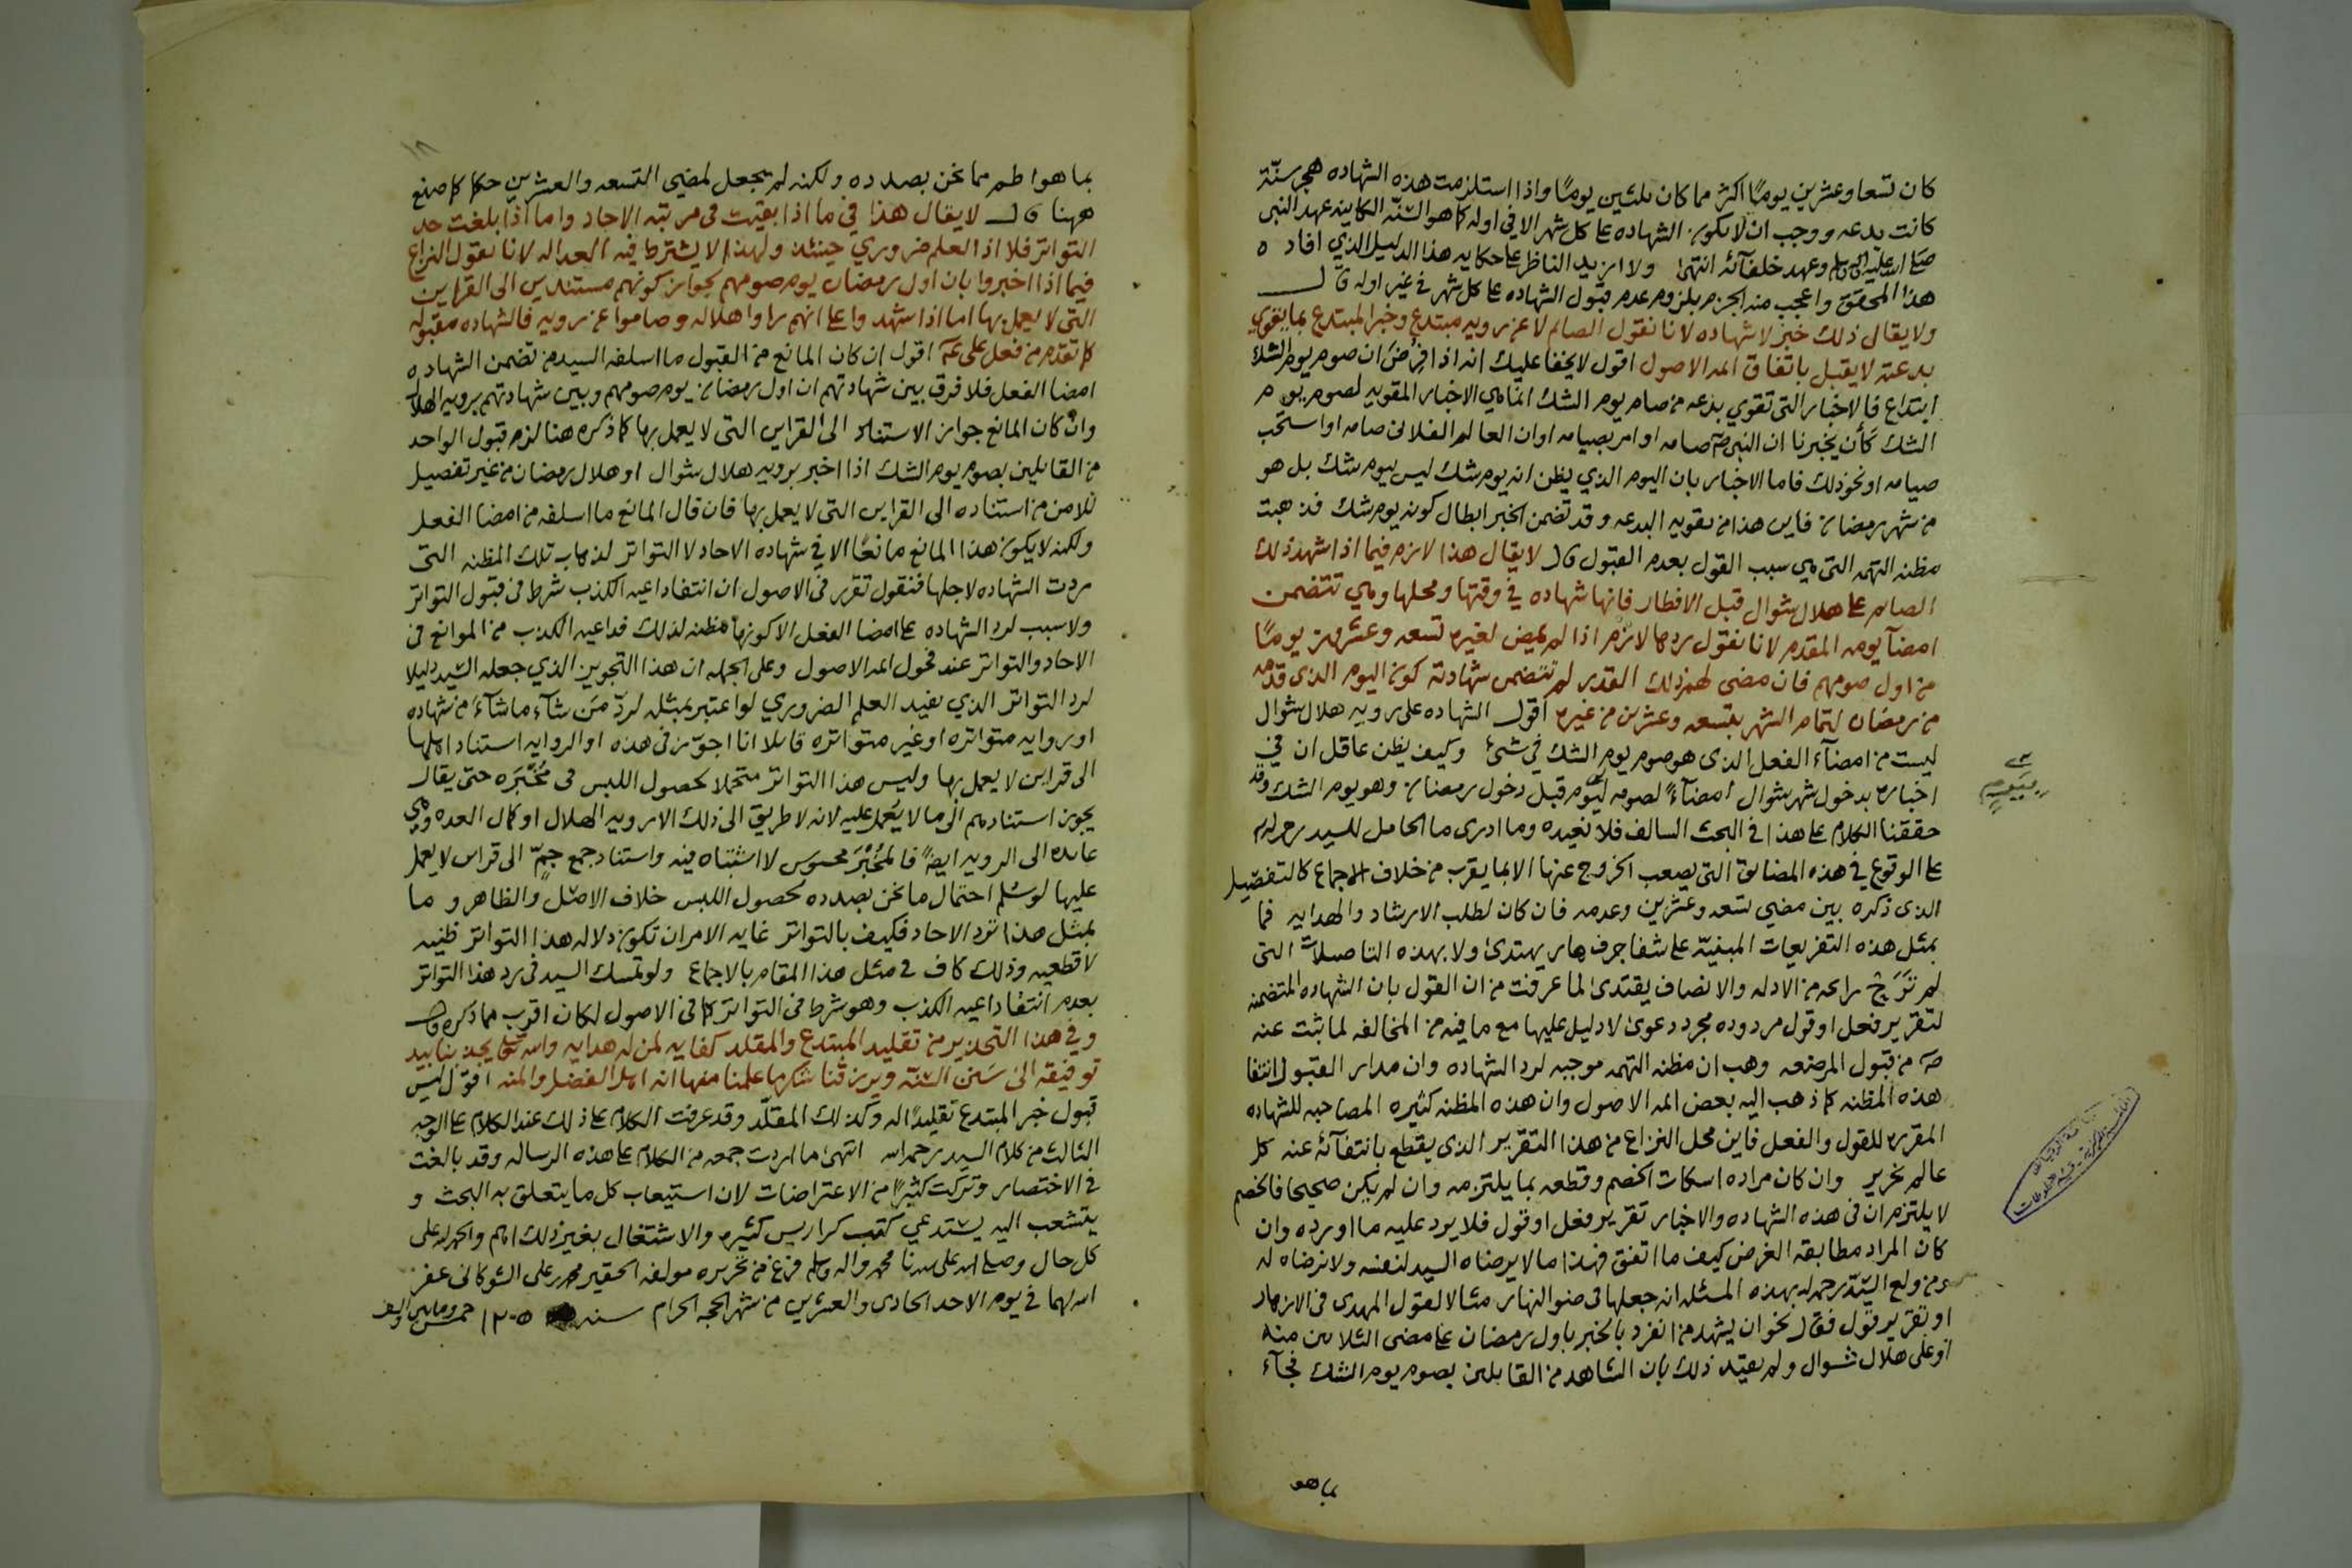 كان تسعا وعشرين يوما اكثر مما كان ثلثين يوما واذا استلزمت هذه الشهاده هجر سنّة
كانت بدعه ووجب ان لا يكون الشهاده على كل شهر الا في اوله كما هو السنّه الكاينه عهد النبى
صلى الله عليه واله وسلم وعهد خلفآئه انتهى ولا ازيد الناظر على حكايه هذا الدليل الذي افاده
هذا المحقق واعجب منه الجزم بلزوم عدم قبول الشهاده على كل شهر في غير اوله قال
ولا يقال ذلك خبر لا شهاده لانا نقول الصائم لا عن رويه مبتدع وخبر المبتدع بما يقوي
بدعته لا يقبل باتفاق ائمه الاصول اقول لا يخفا عليك انه اذا فرض ان صوم يوم الشك
ابتداع فالاخبار التى تقوي بدعه من صام يوم الشك انما هي الاخبار المقويه لصوم يوم
الشك كأن يخبرنا ان النبى صامه او امر بصيامه او ان العالم الفلانى صامه او استحب
صيامه او نحو ذلك فاما الاخبار بان اليوم الذي يظن انه يوم شك ليس بيوم شك بل هو
من شهر رمضان فاين هذا من تقويه البدعه وقد تضمن الخبر ابطال كونه يوم شك فذهبت
مظنه التهمه التى هي سبب القول بعدم القبول قال لا يقال هذا لازم فيما اذا شهد ذلك
الصائم على هلال شوال قبل الافطار فانها شهاده في وقتها ومحلها وهي تتضمن
امضآ يومه المقدم لانا نقول ردها لازم اذا لم يمض لغيره تسعه وعشرون يوما
من اول صومهم فان مضى لهم ذلك القدر لم تتضمن شهادته كون اليوم الذى قدمه
من رمضان لتمام الشهر بتسعه وعشرين من غيره اقول الشهاده على رويه هلال شوال
ليست من امضآء الفعل الذى هو صوم يوم الشك في شئ وكيف يظن عاقل ان في
اخباره بدخول شهر شوال امضآءً لصومه ليوم قبل دخول رمضان وهو يوم الشك وقد
حققنا الكلام على هذا في البحث السالف فلا نعيده وما ادرى ما الحامل للسيد رحمه الله
على الوقوع في هذه المضايق التى يصعب الخروج عنها الا بما يقرب من خلاف الاجماع كالتفصيل
الذى ذكره بين مضي تسعه وعشرين وعدمه فان كان لطلب الارشاد والهدايه فما
بمثل هذه التفريعات المبنيّة على شفا جرف هار يهتدى ولا بهذه التاصيلات التى
لم تَرَحْ رايحه من الادله والانصاف يقتدى لما عرفت من ان القول بان الشهاده المتضمنه
لتقرير فعل او قول مردوده مجرد دعوى لا دليل عليها مع ما فيه من المخالفه لما ثبت عنه
من قبول المرضعه وهب ان مظنه التهمه موجبه لرد الشهاده وان مدار القبول انتفا
هذه المظنه كما ذهب اليه بعض ائمه الاصول وان هذه المظنه كثيره المصاحبه للشهاده
المقرره للقول والفعل فاين محل النزاع من هذا التقرير الذى يقطع بانتفآئه عنه كل
عالم نحرير وان كان مراده اسكات الخصم وقطعه بما يلتزمه وان لم يكن صحيحا فالخصم
لا يلتزم ان فى هذه الشهاده والاخبار تقرير فعل او قول فلا يرد عليه ما اورده وان
كان المراد مطابقه الغرض كيف ما اتفق فهذا ما لا يرضاه السيد لنفسه ولا نرضاه له
ومن ولع السيّد رحمه الله بهذه المسئله انه جعلها فى ضوء النهار مثالا لقول المهدى فى الازهار
او تقرير قول فقال نحو ان يشهد من انفرد بالخبر باول رمضان على مضى الثلاثين منه
او على هلال شوال ولم يقيّد ذلك بان الشاهد من القايلين بصوم يوم الشك فجآء
بما هو
بما هو اطم مما نحن بصدده ولكنه لم يجعل لمضي التسعه والعشرين حكما كما صنع
ههنا قال لا يقال هذا في ما اذا بقيت فى مرتبه الاحاد واما اذا بلغت حد
التواتر فلا اذ العلم ضروري حينئذ ولهذا لا يشترط فيه العداله لانا نقول النزاع
فيما اذا اخبروا بان اول رمضان يوم صومهم لجواز كونهم مستندين الى القراين
التى لا يعمل بها اما اذا شهدوا على انهم راوا هلاله وصاموا عن رويه فالشهاده مقبوله
كما تقدم من فعل على عم اقول ان كان المانع من القبول ما اسلفه السيد من تضمن الشهاده
امضا الفعل فلا فرق بين شهادتهم ان اول رمضان يوم صومهم وبين شهادتهم برويه الهلال
وان كان المانع جواز الاستناد الى القراين التى لا يعمل بها كما ذكره هنا لزم قبول الواحد
من القايلين بصوم يوم الشك اذا اخبر برويه هلال شوال او هلال رمضان من غير تفصيل
للامن من استناده الى القراين التى لا يعمل بها فان قال المانع ما اسلفه من امضا الفعل
ولكنه لا يكون هذا المانع مانعًا الا في شهاده الاحاد لا التواتر لذهاب تلك المظنه التى
ردت الشهاده لاجلها فنقول تقرر فى الاصول ان انتفا داعيه الكذب شرط فى قبول التواتر
ولا سبب لرد الشهاده على امضا الفعل الا كونها مظنه لذلك فداعيه الكذب من الموانع فى
الاحاد والتواتر عند فحول ائمه الاصول وعلى الجمله ان هذا التجويز الذي جعله السيد دليلا
لرد التواتر الذي يفيد العلم الضروري لو اعتبر بمثله لردّ مَن شآء ما شآء من شهاده
او روايه متواتره او غير متواتره قايلا انا اجوّز فى هذه او الروايه استناد اهلها
الى قراين لا يعمل بها وليس هذا التواتر متحملا لحصول اللبس فى مُخْبَره حتى يقال
يجوز استنادهم الى ما لا يُعمل عليه لانه لا طريق الى ذلك الا رويه الهلال او كمال العده وهي
عايده الى الرويه ايضًا فالمُخْبَر محسوس لا اشتباه فيه واستناد جمع جمّ الى قراين لا يعمل
عليها لو سُلم احتمال ما نحن بصدده لحصول اللبس خلاف الاصل والظاهر وما
بمثل هذا ترد الاحاد فكيف بالتواتر غايه الامر ان تكون دلاله هذا التواتر ظنيه
لا قطعيه وذلك كاف فى مثل هذا المقام بالاجماع ولو تمسك السيد فى رد هذا التواتر
بعدم انتفا داعيه الكذب وهو شرط فى التواتر كما فى الاصول لكان اقرب مما ذكره قال
وفي هذا التحذير من تقليد المبتدع والمقلد كفايه لمن له هدايه والله تعالى يجذبنا بيد
توفيقه الى سَنن السُنّه ويرزقنا شكر ما علمنا منها انه اهل الفضل والمنه اقول ليس
قبول خبر المبتدع تقليدًا له وكذلك المقلّد وقد عرفت الكلام على ذلك عند الكلام على الوجه
الثالث من كلام السيد رحمه الله انتهى ما اردت جمعه من الكلام على هذه الرساله وقد بالغت
فى الاختصار وتركت كثيرًا من الاعتراضات لان استيعاب كل ما يتعلق به البحث و
يتشعب اليه يستدعي كتب كراريس كثيره والاشتغال بغير ذلك اهم والحمد لله على
كل حال وصلى الله على سيدنا محمد واله وسلم فرغ من تحريره مولفه الحقير محمد بن على الشوكانى غفر
الله لهما في يوم الاحد الحادى والعشرين من شهر الحجه الحرام سنه ١٢٠٥ خمس ومايتين والف